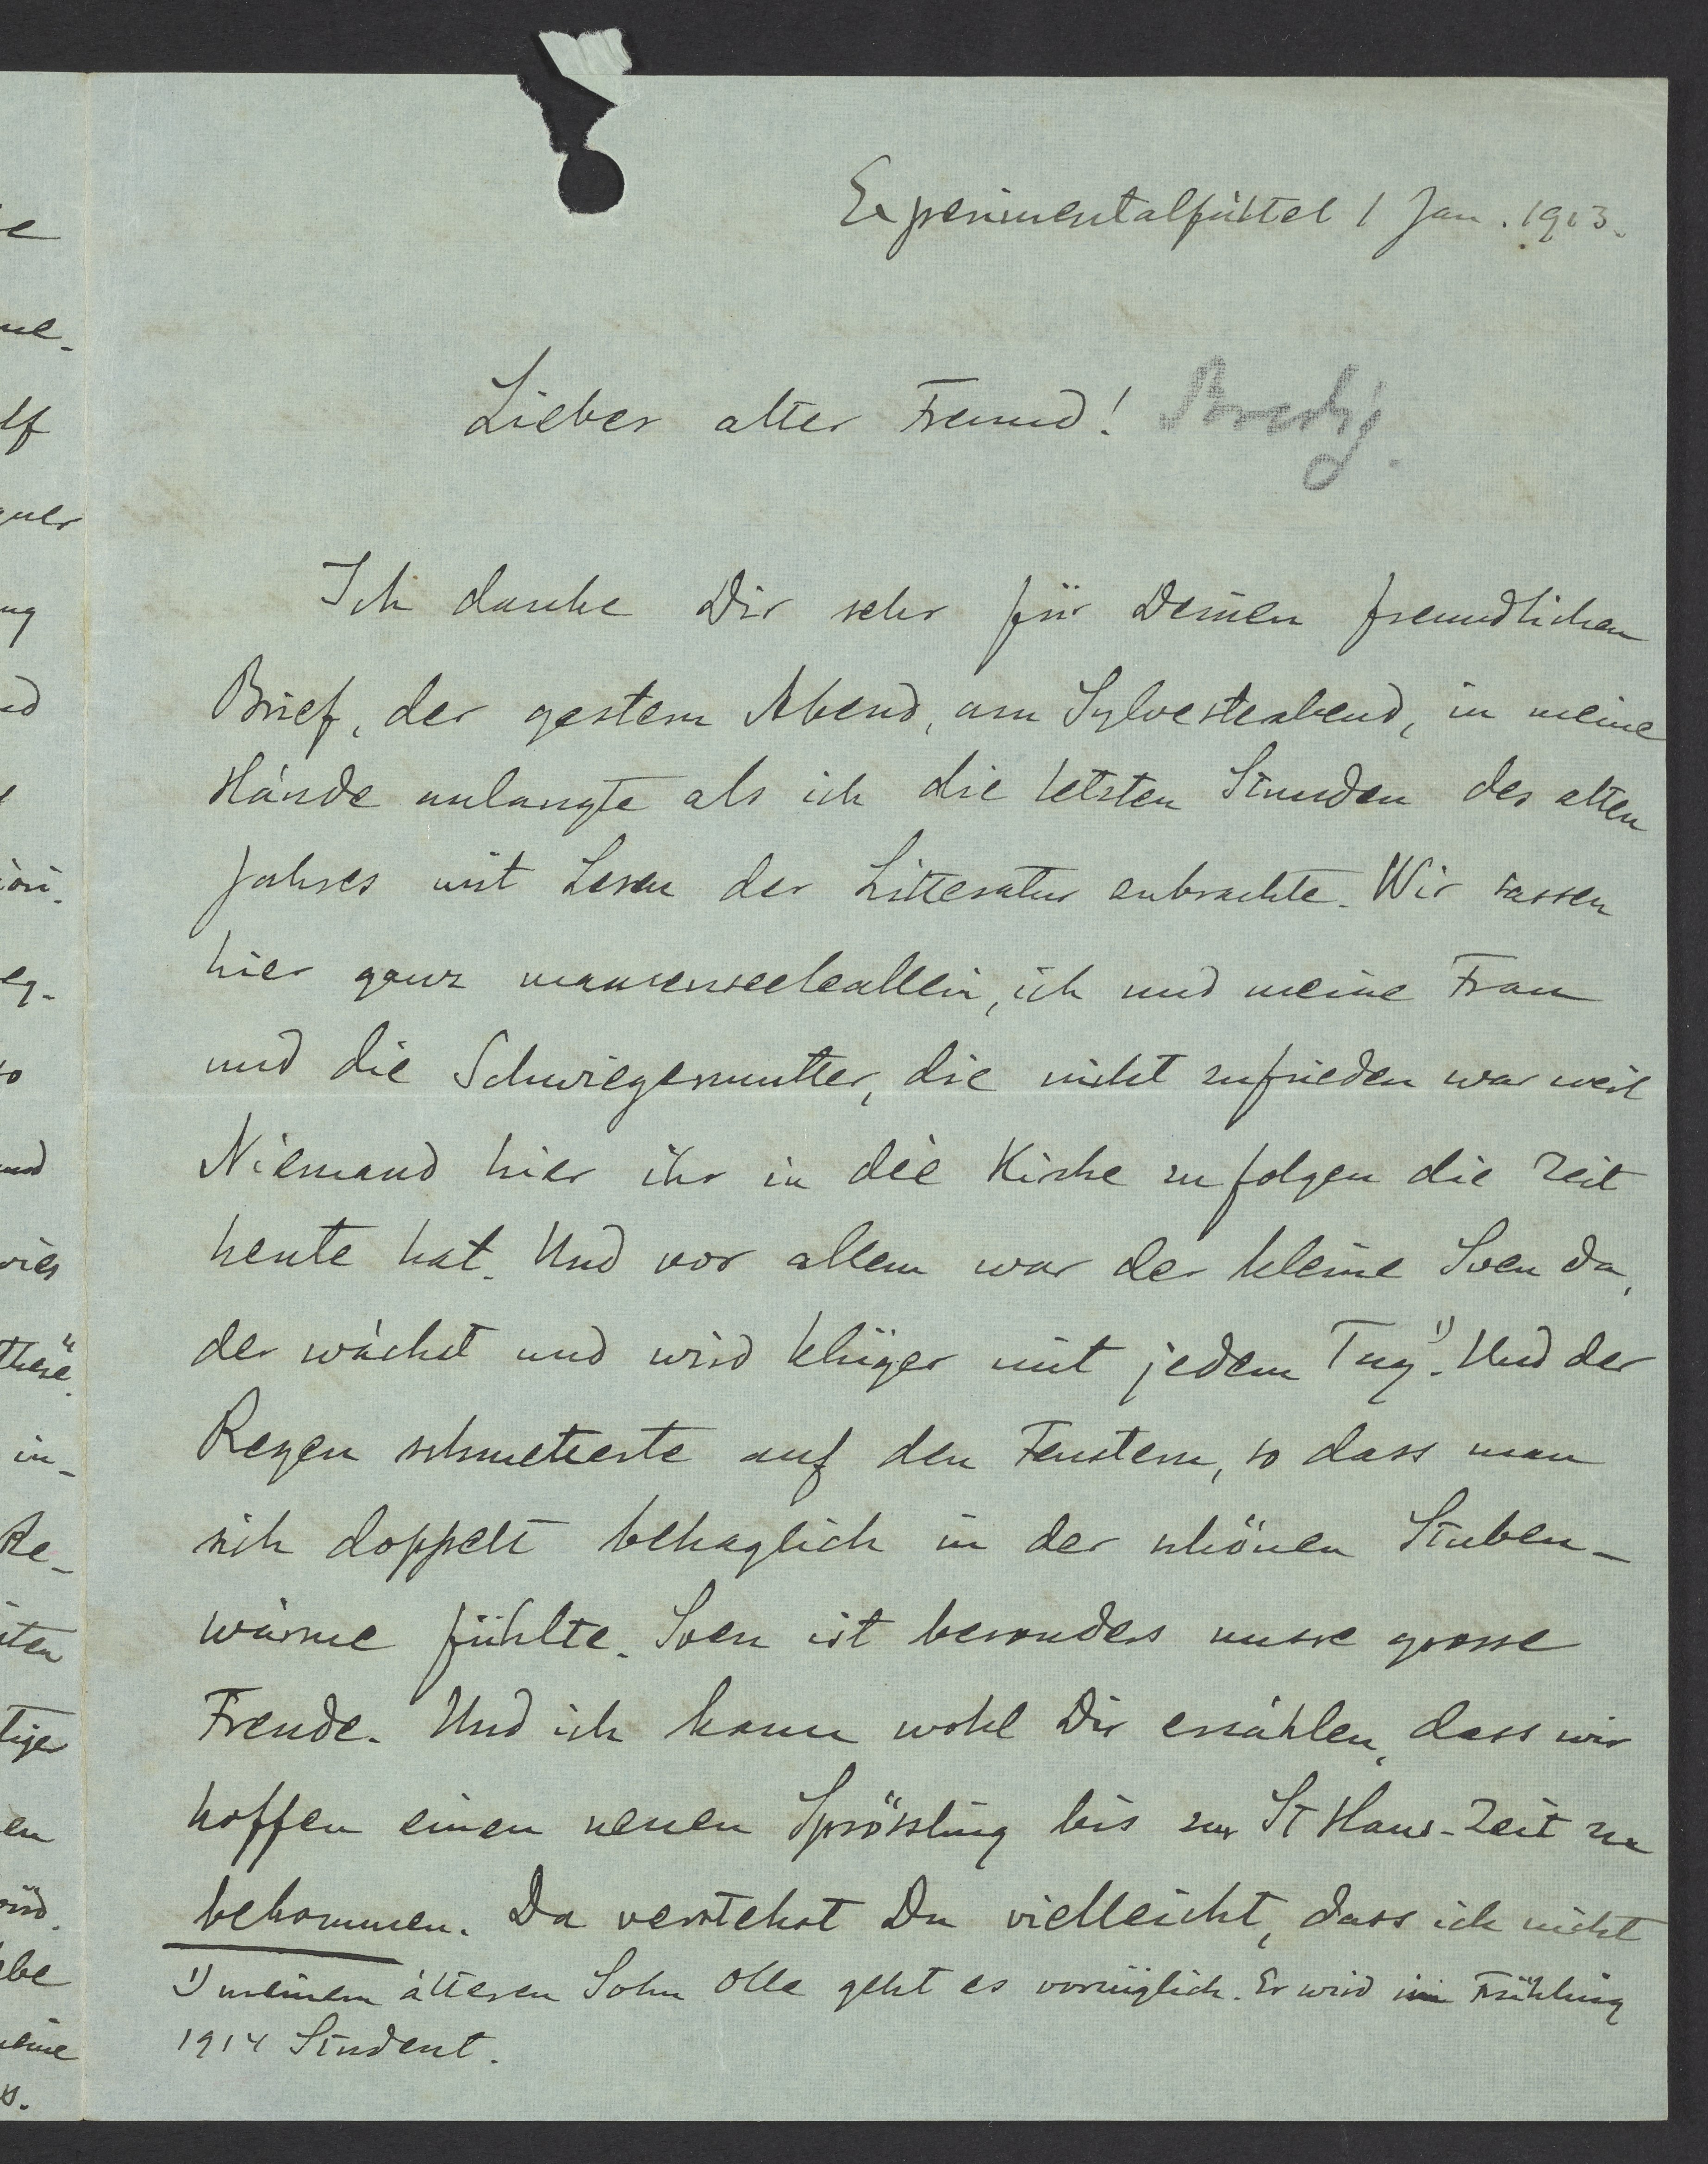 Experimentalfältet 1 Jan. 1913.
Lieber alter Freund! Bredig.
Ich danke Dir sehr für Deinen freundlichen
Brief, der gestern Abend, am Sylvesterabend, in meine
Hände anlangte als ich die letzten Stunden des alten
Jahres mit Lesen der Litteratur anbrachte. Wir sassen
hier ganz mausenseeleallein, ich und meine Frau
und die Schwiegermutter, die nicht zufrieden war weil
Niemand hier ihr in die Kirche zu folgen die Zeit
heute hat. Und vor allem war der kleine Sven da,
der wächst und wird klüger mit jedem Tag 1). Und der
Regen schmetterte auf den Fenstern, so dass man
sich doppelt behaglich in der schönen Stuben-
wärme fühlte. Sven ist besonders unsre grosse
Freude. Und ich kann wohl Dir erzählen, dass wir
hoffen einen neuen Sprössling bis zur St Hans-Zeit zu
bekommen. Da verstehst Du vielleicht, dass ich nicht
1) meinem älteren Sohn Olle geht es vorzüglich. Er wird im Frühling
1914 Student.